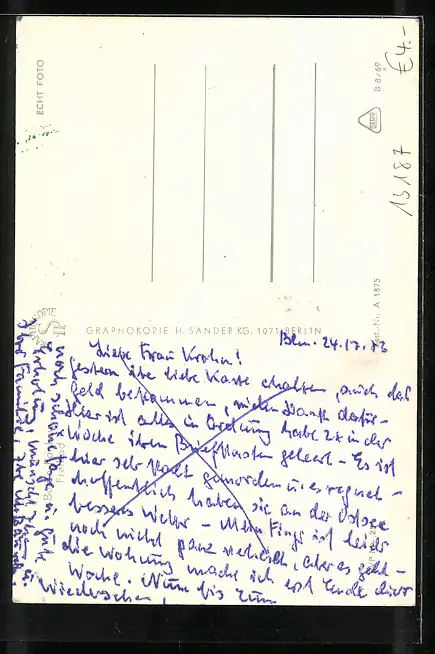 ECHT FOTO
B 8/69
€ 4.-
13187
Best.-Nr. A 1875
GRAPHOKOPIE H. SANDER KG. 1071 BERLIN
Bln. 24.17.73
Liebe Frau Krohn!
gestern Ihre liebe Karte erhalten, auch das
Geld bekommen, vielen Dank dafür -
Hier ist alles in Ordnung habe 2x in der
Woche Ihren Briefkasten geleert - Es ist
hier sehr kalt geworden u. es regnet -
hoffentlich haben Sie an der Ostsee
besseres Wetter - Mein Finger ist leider
noch nicht ganz verheilt, aber es geht -
die Wohnung mache ich erst Ende dieser
Woche. Nun bis zum
Wiedersehen,
noch schöne Tage u. gute
Erholung wünscht Ihnen u.
Ihrer Familie, Ihre